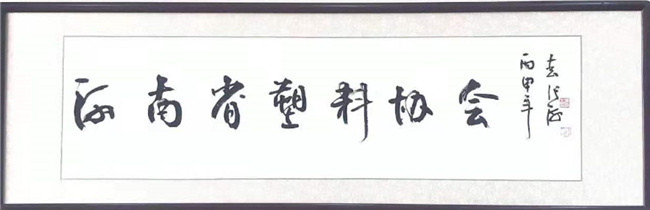 河南省塑料协会
丙申年